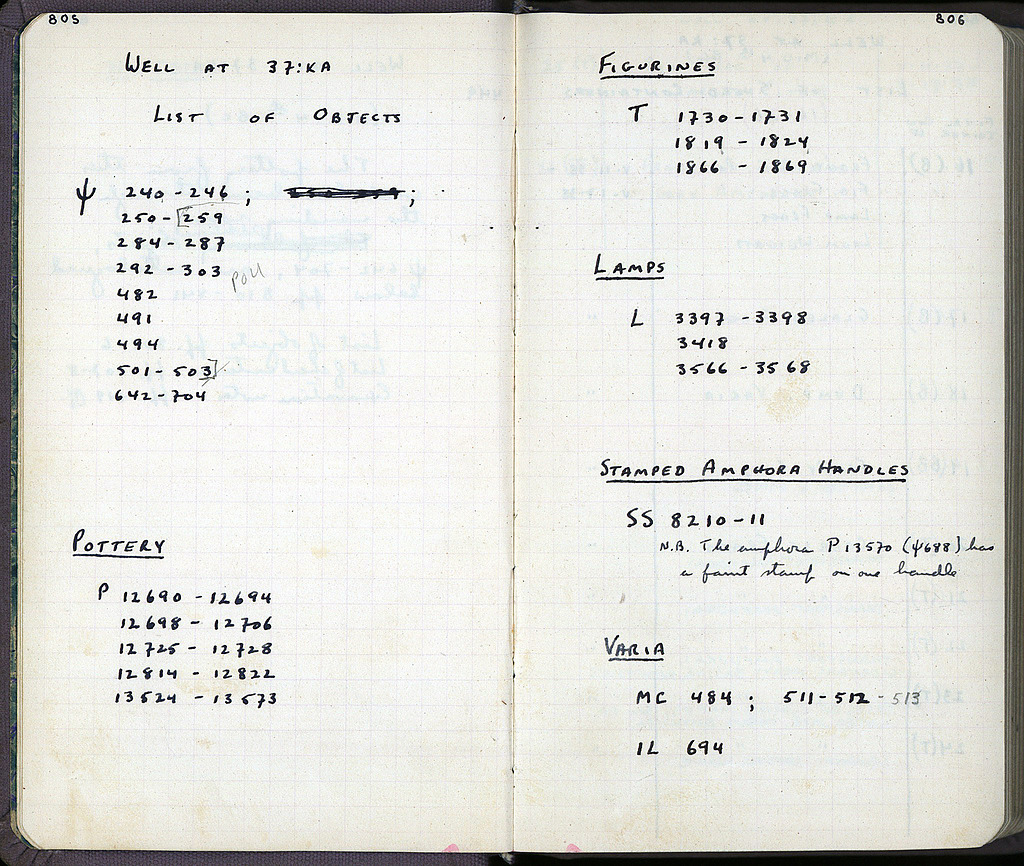 805
WELL AT 37:KA
LIST OF OBJECTS
Ψ 240-246 ; ;
250-[259
284-287
292-303
482
491
494
501-503]
642-704
POTTERY
P 12690-12694
12698-12706
12725-12728
12814-12822
13524-13573
806
FIGURINES
T 1730-1731
1819-1824
1866-1869
LAMPS
L 3397-3398
3418
3566-3568
STAMPED AMPHORA HANDLES
SS 8210-11
N.B. The amphora P 13570 (Ψ688) has
a faint stamp on one handle
VARIA
MC 484 ; 511-512-513
IL 694